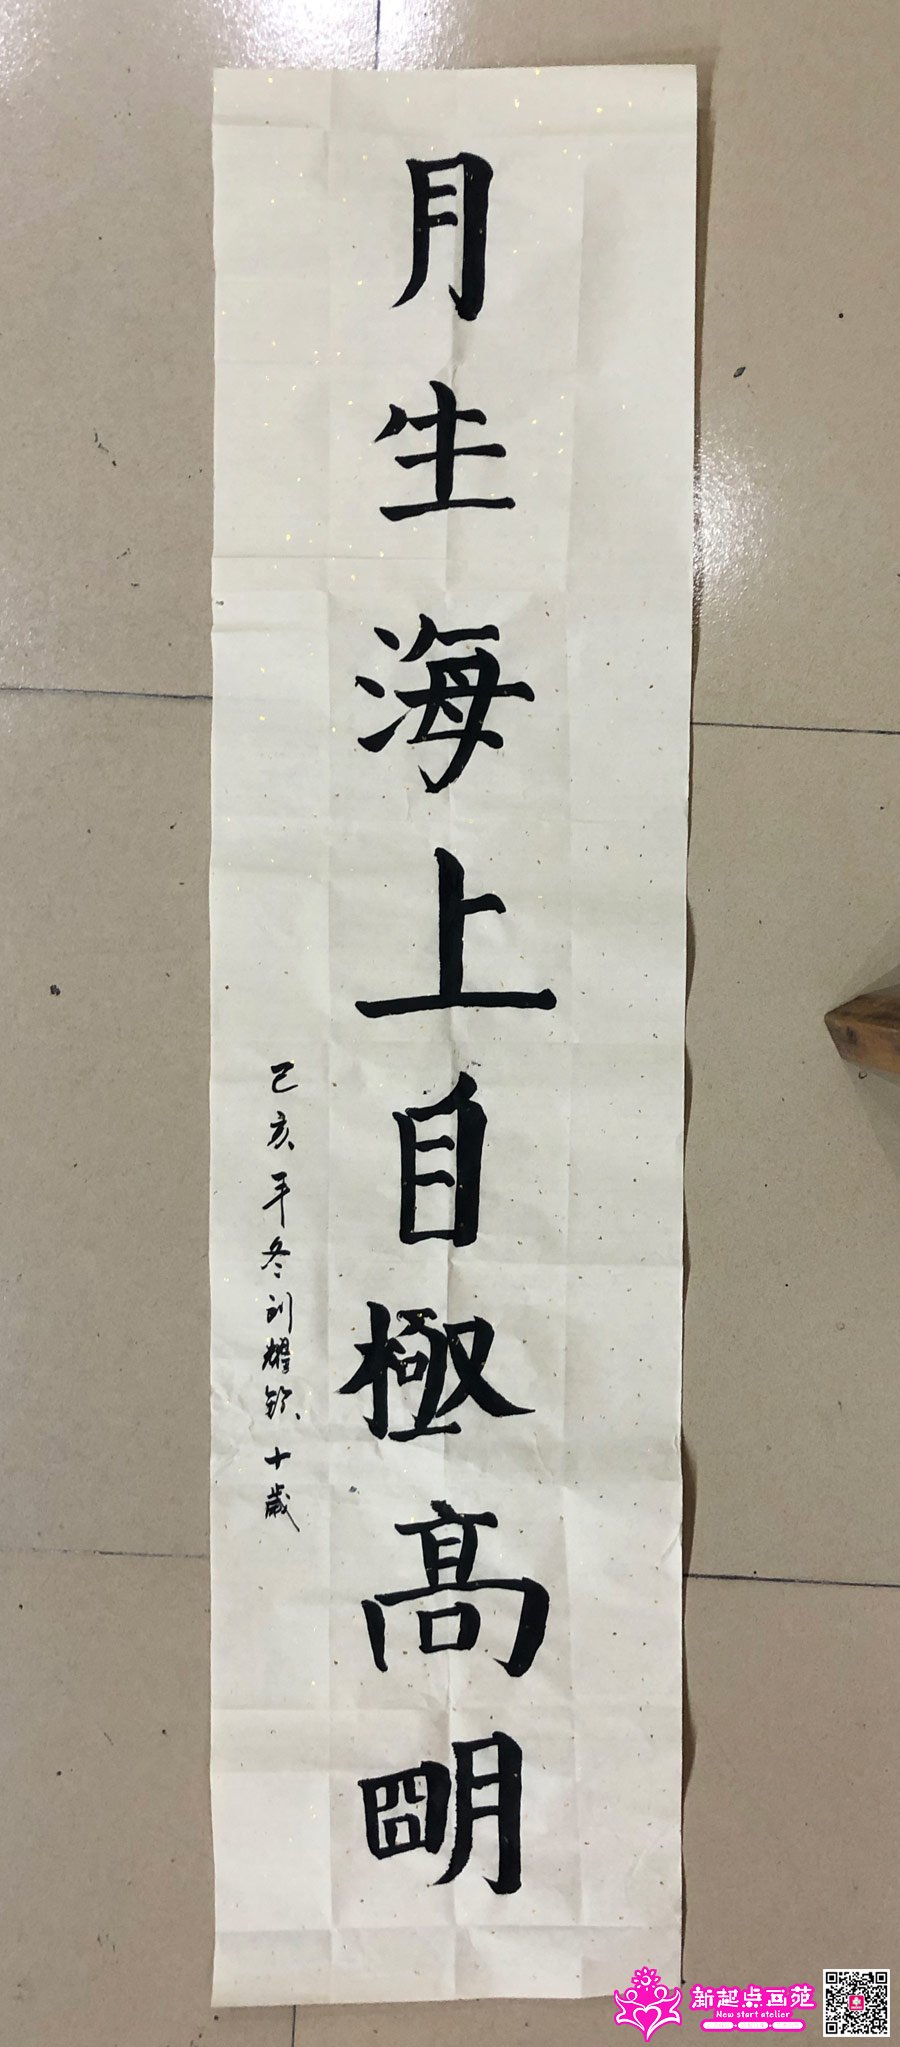 月生海上自極高朙
己亥年冬刘耀 十歲
新起点画苑
New start atelier